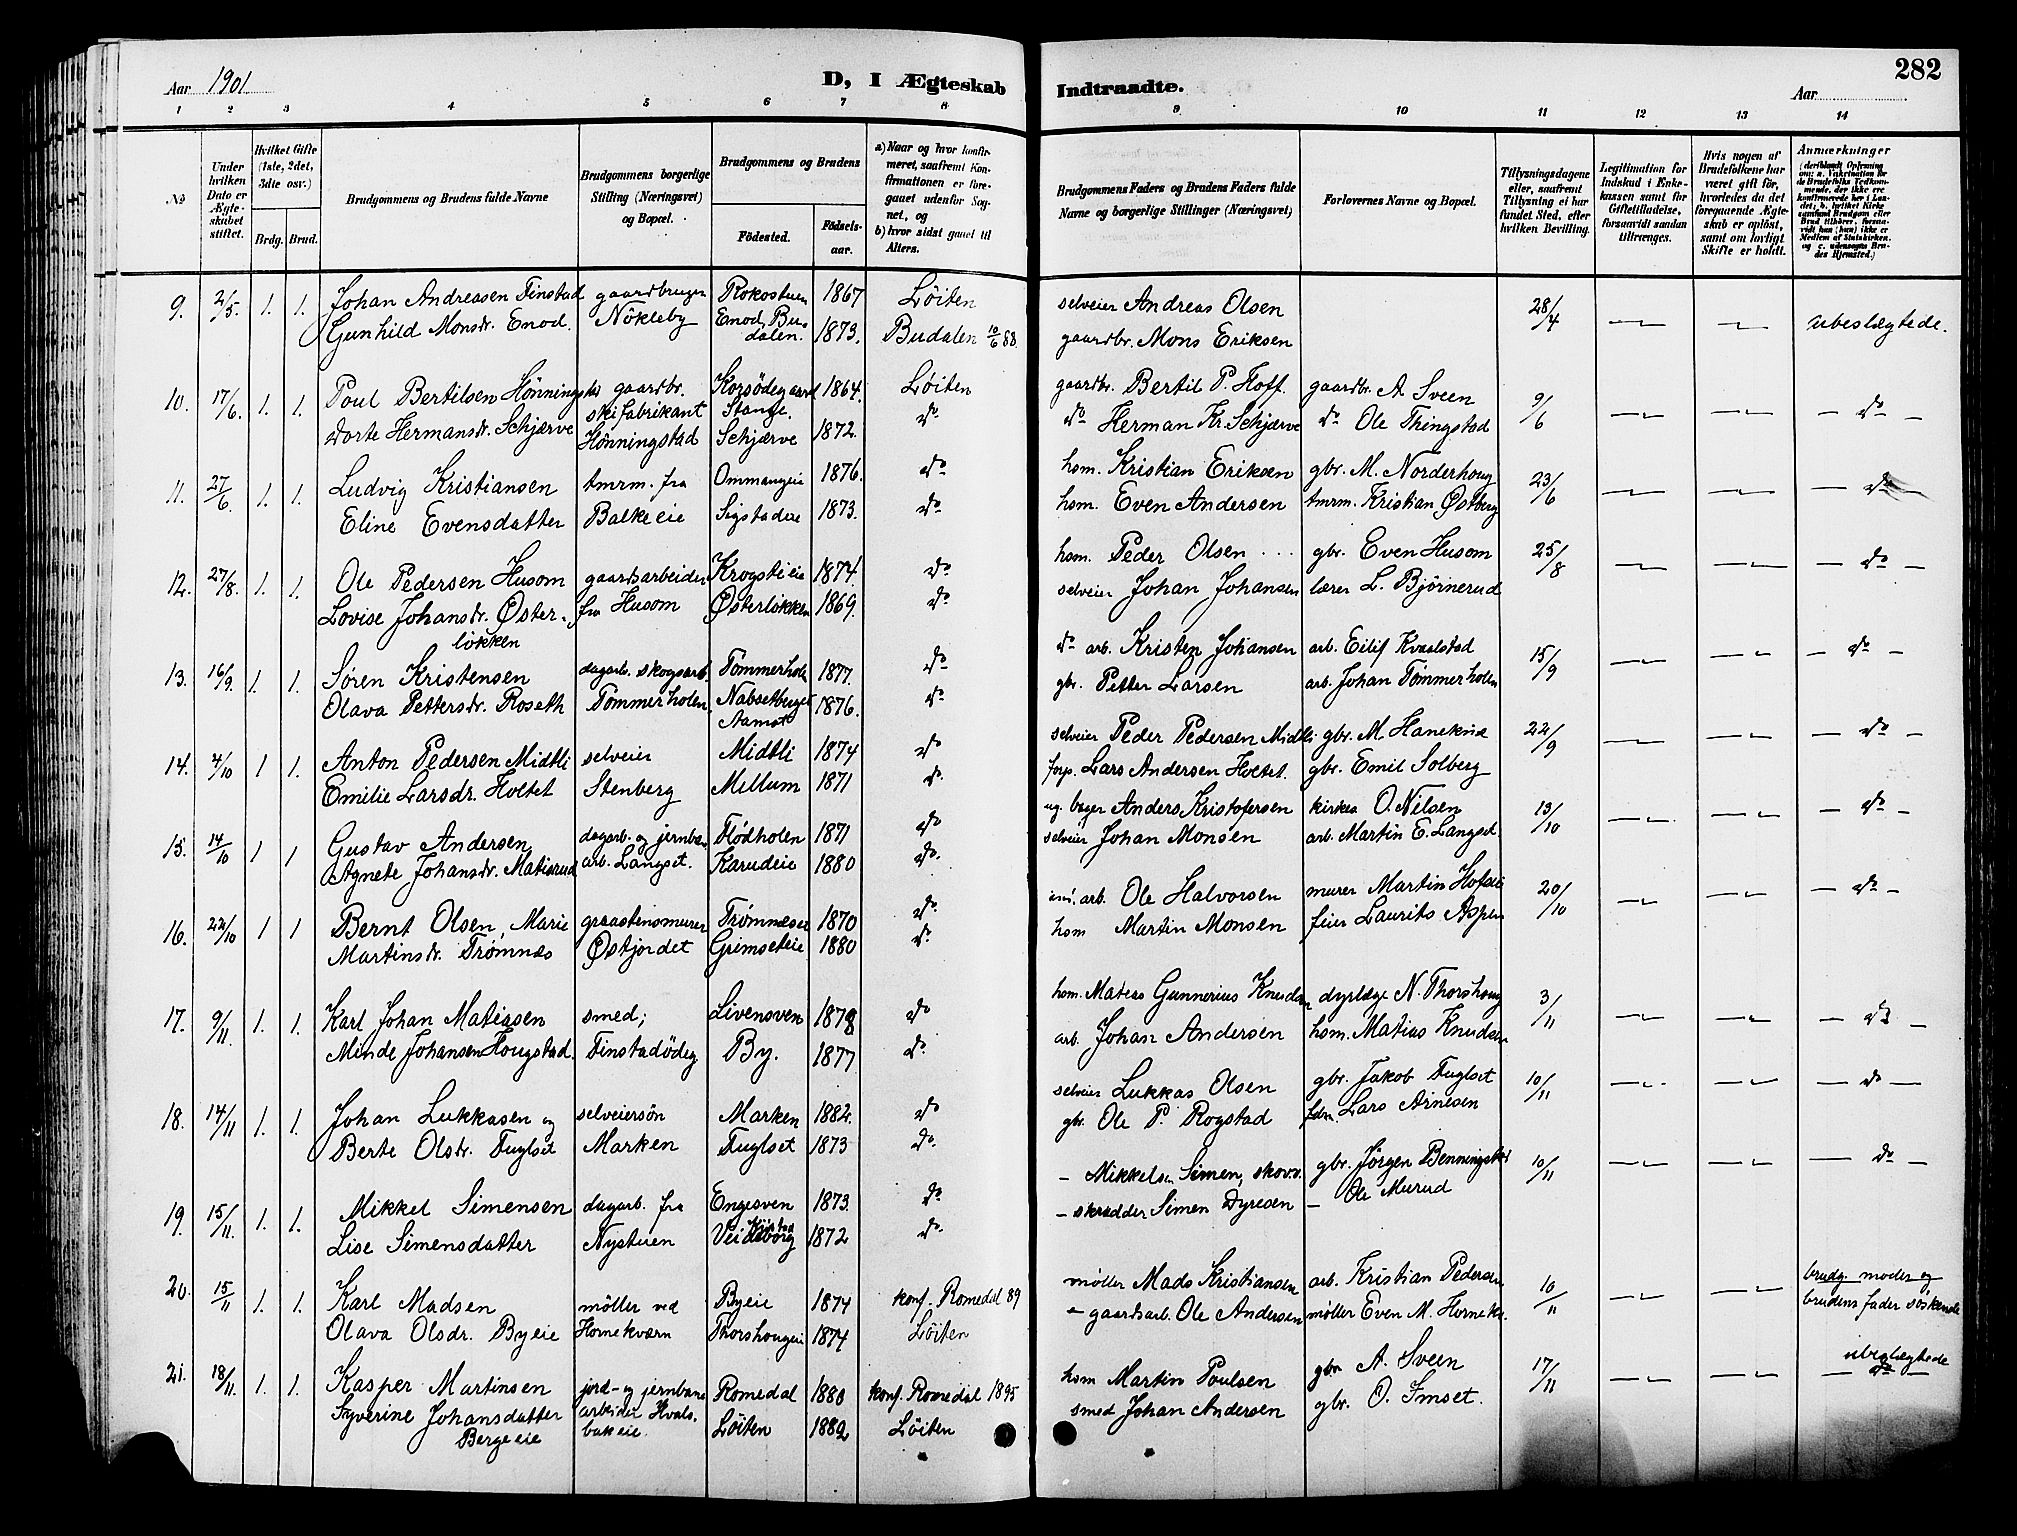 282
Aar 1901
D, I Ægteskab
Indtraadte.
Aar
1 2 3 4 5 6 7 8
9 10 11 12 13 14
No
Under hvilken Dato er Ægteskabet stiftet.
Hvilket Gifte (1ste, 2det, 3die osv.)
Brdg. Brud.
Brudgommens og Brudens fulde Navne
Brudgommens borgerlige Stilling (Næringsvei) og Bopæl.
Brudgommens og Brudens
Fødested. Fødselsaar.
a) Naar og hvor konfirmeret, saafremt Konfirmationen er foregaaet udenfor Sognet, og
b) hvor sidst gaaet til Alters.
Brudgommens Faders og Brudens Faders fulde Navne og borgerlige Stillinger (Næringsvei)
Forlovernes Navne og Bopæl.
Tillysningsdagene eller, saafremt Tillysning ei har fundet Sted, efter hvilken Bevilling.
Legitimation for Indskud i Enkekassen samt for Giftetilladelse, forsaavidt saadan tiltrænges.
Hvis nogen af Brudefolkene har været gift før, hvorledes da det foregaaende Ægteskab er opløst, samt om lovligt Skifte er holdt.
Anmærkninger
9. 2/5. 1. 1. Johan Andreasen Finstad gaardbruger Rokostuen 1867 Løiten selveier Andreas Olsen 28/4 — — ubeslægtede.
Gunhild Monsdr. Enod. Nökleby Enod, Budalen. 1873. Budalen 10/6 88. gaardbr. Mons Eriksen
10. 17/6. 1. 1. Poul Bertilsen Hønningstad gaardbr. Korsödegaard 1864. Løiten gaardbr. Bertil P. Hoff gaardbr. A Sveen 9/6 — — — do —
Dorte Hermansdr. Schjærve skifabrikant Hønningstad Stange. Schjærve 1872. do do Herman Kr. Schjærve do Ole Thingstad
11. 27/6. 1. 1. Ludvig Kristiansen tmrm. fra Ommangeie 1876. do hsm. Kristian Eriksen gbr. M. Norderhoug 23/6 — — — do
Eline Evensdatter Balkeeie Sigstadeie 1873. do hsm. Even Andersen tmrm. Kristian Østberg
12. 27/8. 1. 1. Ole Pedersen Husom gaardsarbeider Krogstieie 1874. do hsm. Peder Olsen gbr. Even Husom 25/8 — — — do —
Lovise Johansdr. Østerløkken fra Husom Østerløkken 1869. do selveier Johan Johansen lærer L. Bjørnerud
13. 16/9. 1. 1. Søren Kristensen dagarb. skogsarb. Tømmerholen 1877. do do arb. Kristen Johansen arb. Eilif Kvaalstad 15/9 — — — do —
Olava Pettersdr. Roseth Tømmerholen Aamot 1876. do gbr. Petter Larsen arb. Johan Tømmerholen
14. 4/10 1 1. Anton Pedersen Midtli selveier Midtli 1874 do selveier Peder Pedersen Midtli gbr. M. Hanekne 22/9 — — — do —
Emilie Larsdr. Holtet Stenberg Mellum 1871 do. forp. Lars Andersen Holtet. gbr. Emil Solberg
15. 14/10 1 1 Gustav Andersen dagarb. og jernban Flødholen 1871 do ug. bager Anders Kristofersen kirkes. O. Nilsen 13/10 — — — do —
Agnete Johansdr. Matisrud arb. Langset. Karudeie 1880 do. selveier Johan Monsen arb. Martin E. Langset.
16. 22/10 1 1 Bernt Olsen, Marie graastensmurer Trømnæseie 1870 do. arb. Ole Halvorsen murer Martin Hofseie 20/10 — — — do —
Martinsdr. Trømnæs Østjordet Grimseteie 1880 do. hsm Martin Monsen feier Laurits Aspen
17. 9/11. 1. 1. Karl Johan Matiasen smed; Livensven 1878 do hsm. Matias Gunnerius Knudsen dyrlæge N. Thorshoug 3/11 — — — do —
Minde Johansen Hougstad. Finstadødeg By. 1877 do. arb. Johan Andersen hsm. Matias Knudsen
18. 14/11 1. 1. Johan Lukkasen og selveiersøn Marken 1882. do selveier Lukkas Olsen gbr. Jakob Fuglset 10/11 — — — do —
Berte Olsdr. Fuglset Marken Fuglset 1873 do. gbr. Ole P. Rogstad fdm. Lars Arnesen
19. 15/11. 1. 1. Mikkel Simensen dagarb. fra Engesven 1873. do. — Mikkelsen Simen, skovv. gbr. Jörgen Benningstad 10/11 — — — do —
Lise Simensdatter Nystuen 1872 do. — skrædder Simen Dyresen — Ole Murud
20. 15/11 1. 1. Karl Madsen möller ved Byeie 1874 konf. Romedal 89 möller Mads Kristiansen arb. Kristian Pedersen 10/11 — — brudg. moder og
Olava Olsdr. Byeie Hornekværn Thorshougeie 1874 Løiten — gaardsarb. Ole Andersen möller Even M. Hornekv. brudens fader söskende
21. 18/11. 1. 1. Kasper Martinsen jord- og jernbane Romedal 1880 konf. Romedal 1895 hsm Martin Poulsen gbr A. Sveen 17/11 — — ubeslægtede
Syverine Johansdatter Bergeeie arbeider Hvalsbakeie. Løiten 1882 Løiten smed Johan Andersen gbr. O. Imset. — do —